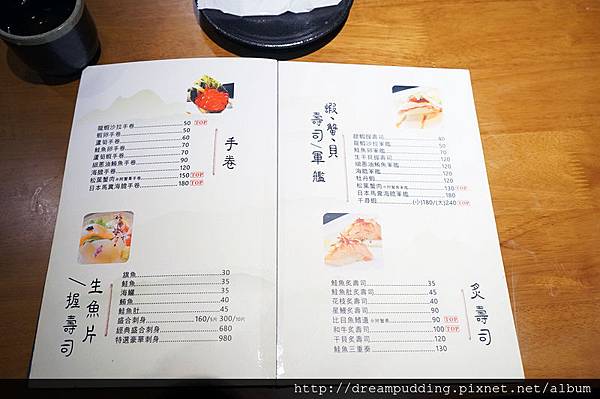 手卷
龍蝦沙拉手卷 50 TOP
蝦卵手卷 50
蘆筍手卷 60
鮭魚卵手卷 70
蘆筍蝦手卷 70
細蔥油鮪魚手卷 90
海膽手卷 120
松葉蟹肉手卷 150 TOP
日本馬糞海膽手卷 180 TOP
生魚片/握壽司
旗魚 30
鮭魚 35
海鱺 35
鮪魚 40
鮭魚肚 45
盛合刺身 160/5片 300/10片
經典盛合刺身 680
特選豪華刺身 980
蝦、蟹、貝壽司/軍艦
甜蝦握壽司 40
龍蝦沙拉軍艦 50
鮭魚卵軍艦 70
生干貝握壽司 120
細蔥油鮪魚軍艦 120
海膽軍艦 120
牡丹蝦 120
松葉蟹肉 130 TOP
日本馬糞海膽軍艦 160
千尋蝦 (小)180/(大)240 TOP
炙壽司
鮭魚炙壽司 35
鮭魚肚炙壽司 45
花枝炙壽司 40
星鰻炙壽司 60
比目魚鰭邊 90 TOP
和牛炙壽司 100 TOP
干貝炙壽司 120
鮭魚三重奏 130
http://dreampudding.pixnet.net/album